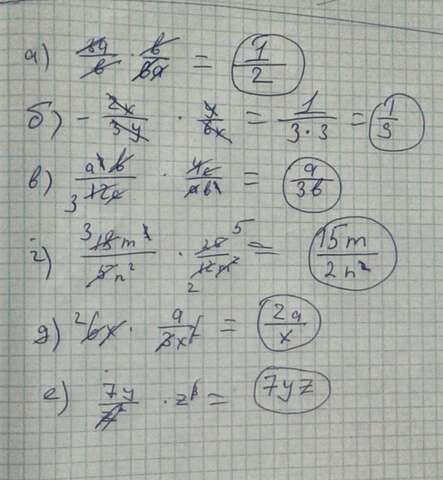 а) 3a/b · b/6a = 1/2
б) - 2x/3y · y/6x = 1/3·3 = 1/9
в) a²b/12c · 4c/ab² = a/3b
г) 18m³/5n² · 25/12m² = 15m/2n²
д) 6x · a/3x² = 2a/x
е) 7y/z · z² = 7yz